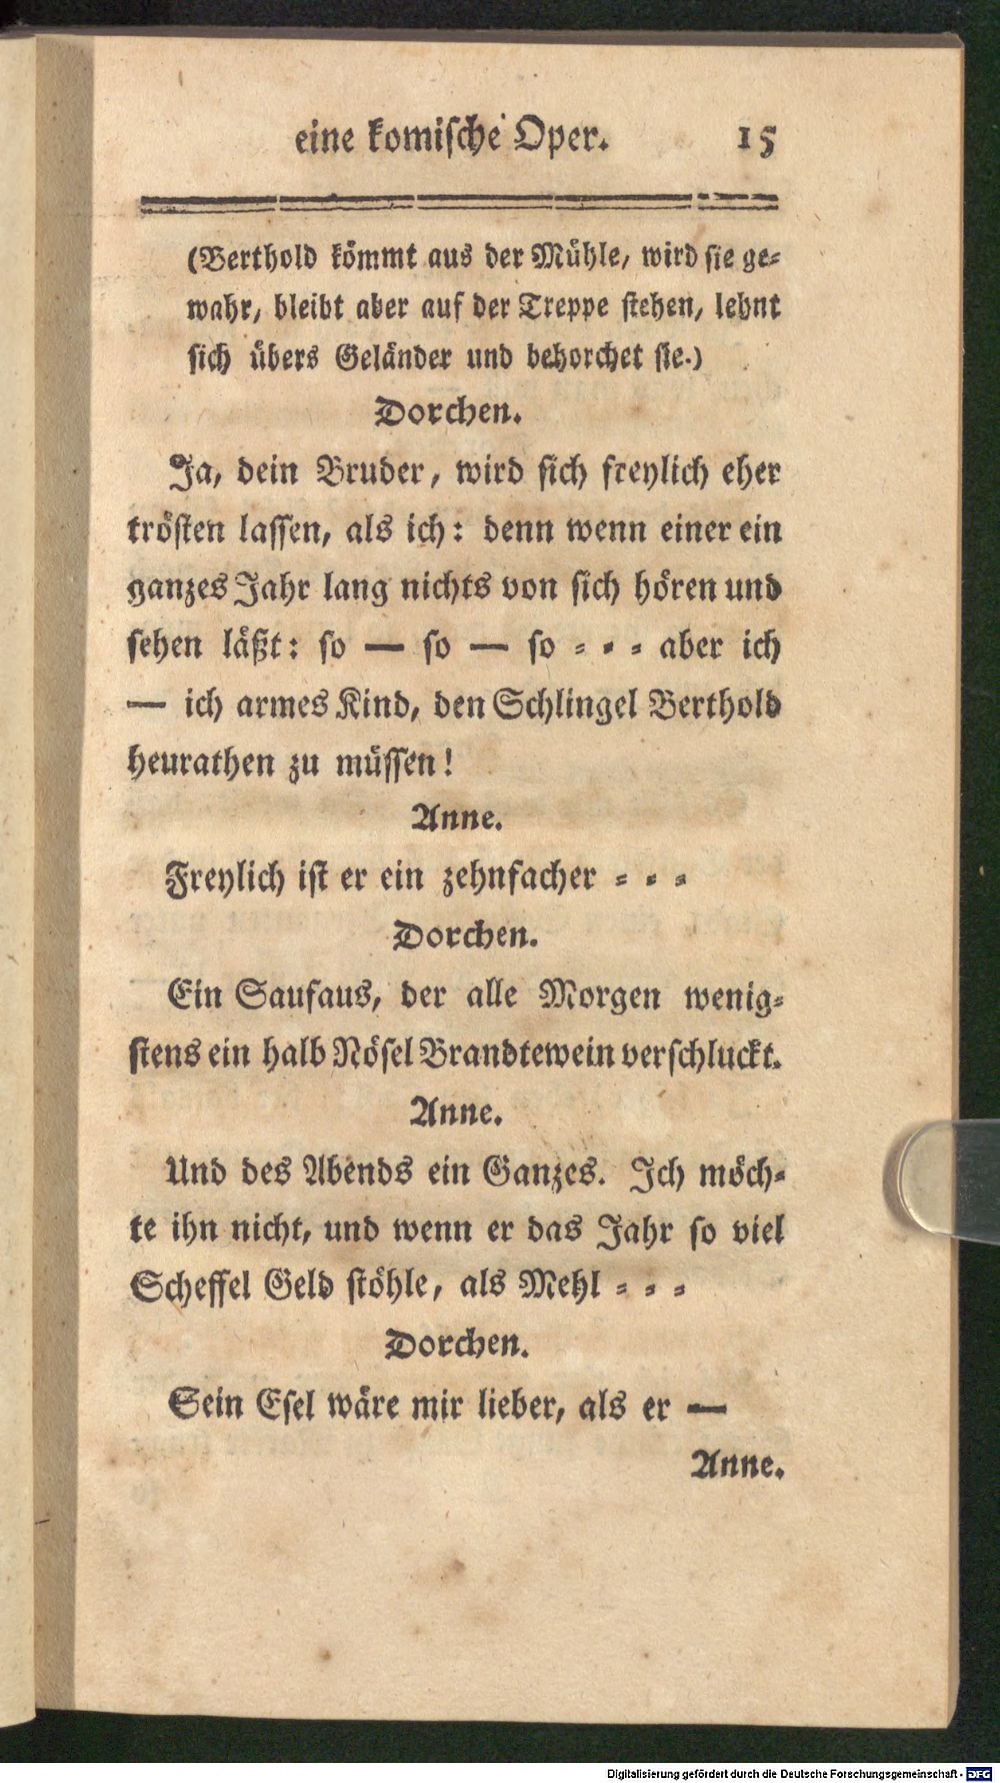 eine komische Oper. 15
(Berthold kömmt aus der Mühle, wird sie ge-
wahr, bleibt aber auf der Treppe stehen, lehnt
sich übers Geländer und behorchet sie.)
Dorchen.
Ja, dein Bruder, wird sich freylich eher
trösten lassen, als ich: denn wenn einer ein
ganzes Jahr lang nichts von sich hören und
sehen läßt: so — so — so - - - aber ich
— ich armes Kind, den Schlingel Berthold
heurathen zu müssen!
Anne.
Freylich ist er ein zehnfacher - - -
Dorchen.
Ein Saufaus, der alle Morgen wenig-
stens ein halb Nösel Brandtewein verschluckt.
Anne.
Und des Abends ein Ganzes. Ich möch-
te ihn nicht, und wenn er das Jahr so viel
Scheffel Geld stöhle, als Mehl - - -
Dorchen.
Sein Esel wäre mir lieber, als er —
Anne.
Digitalisierung gefördert durch die Deutsche Forschungsgemeinschaft - DFG